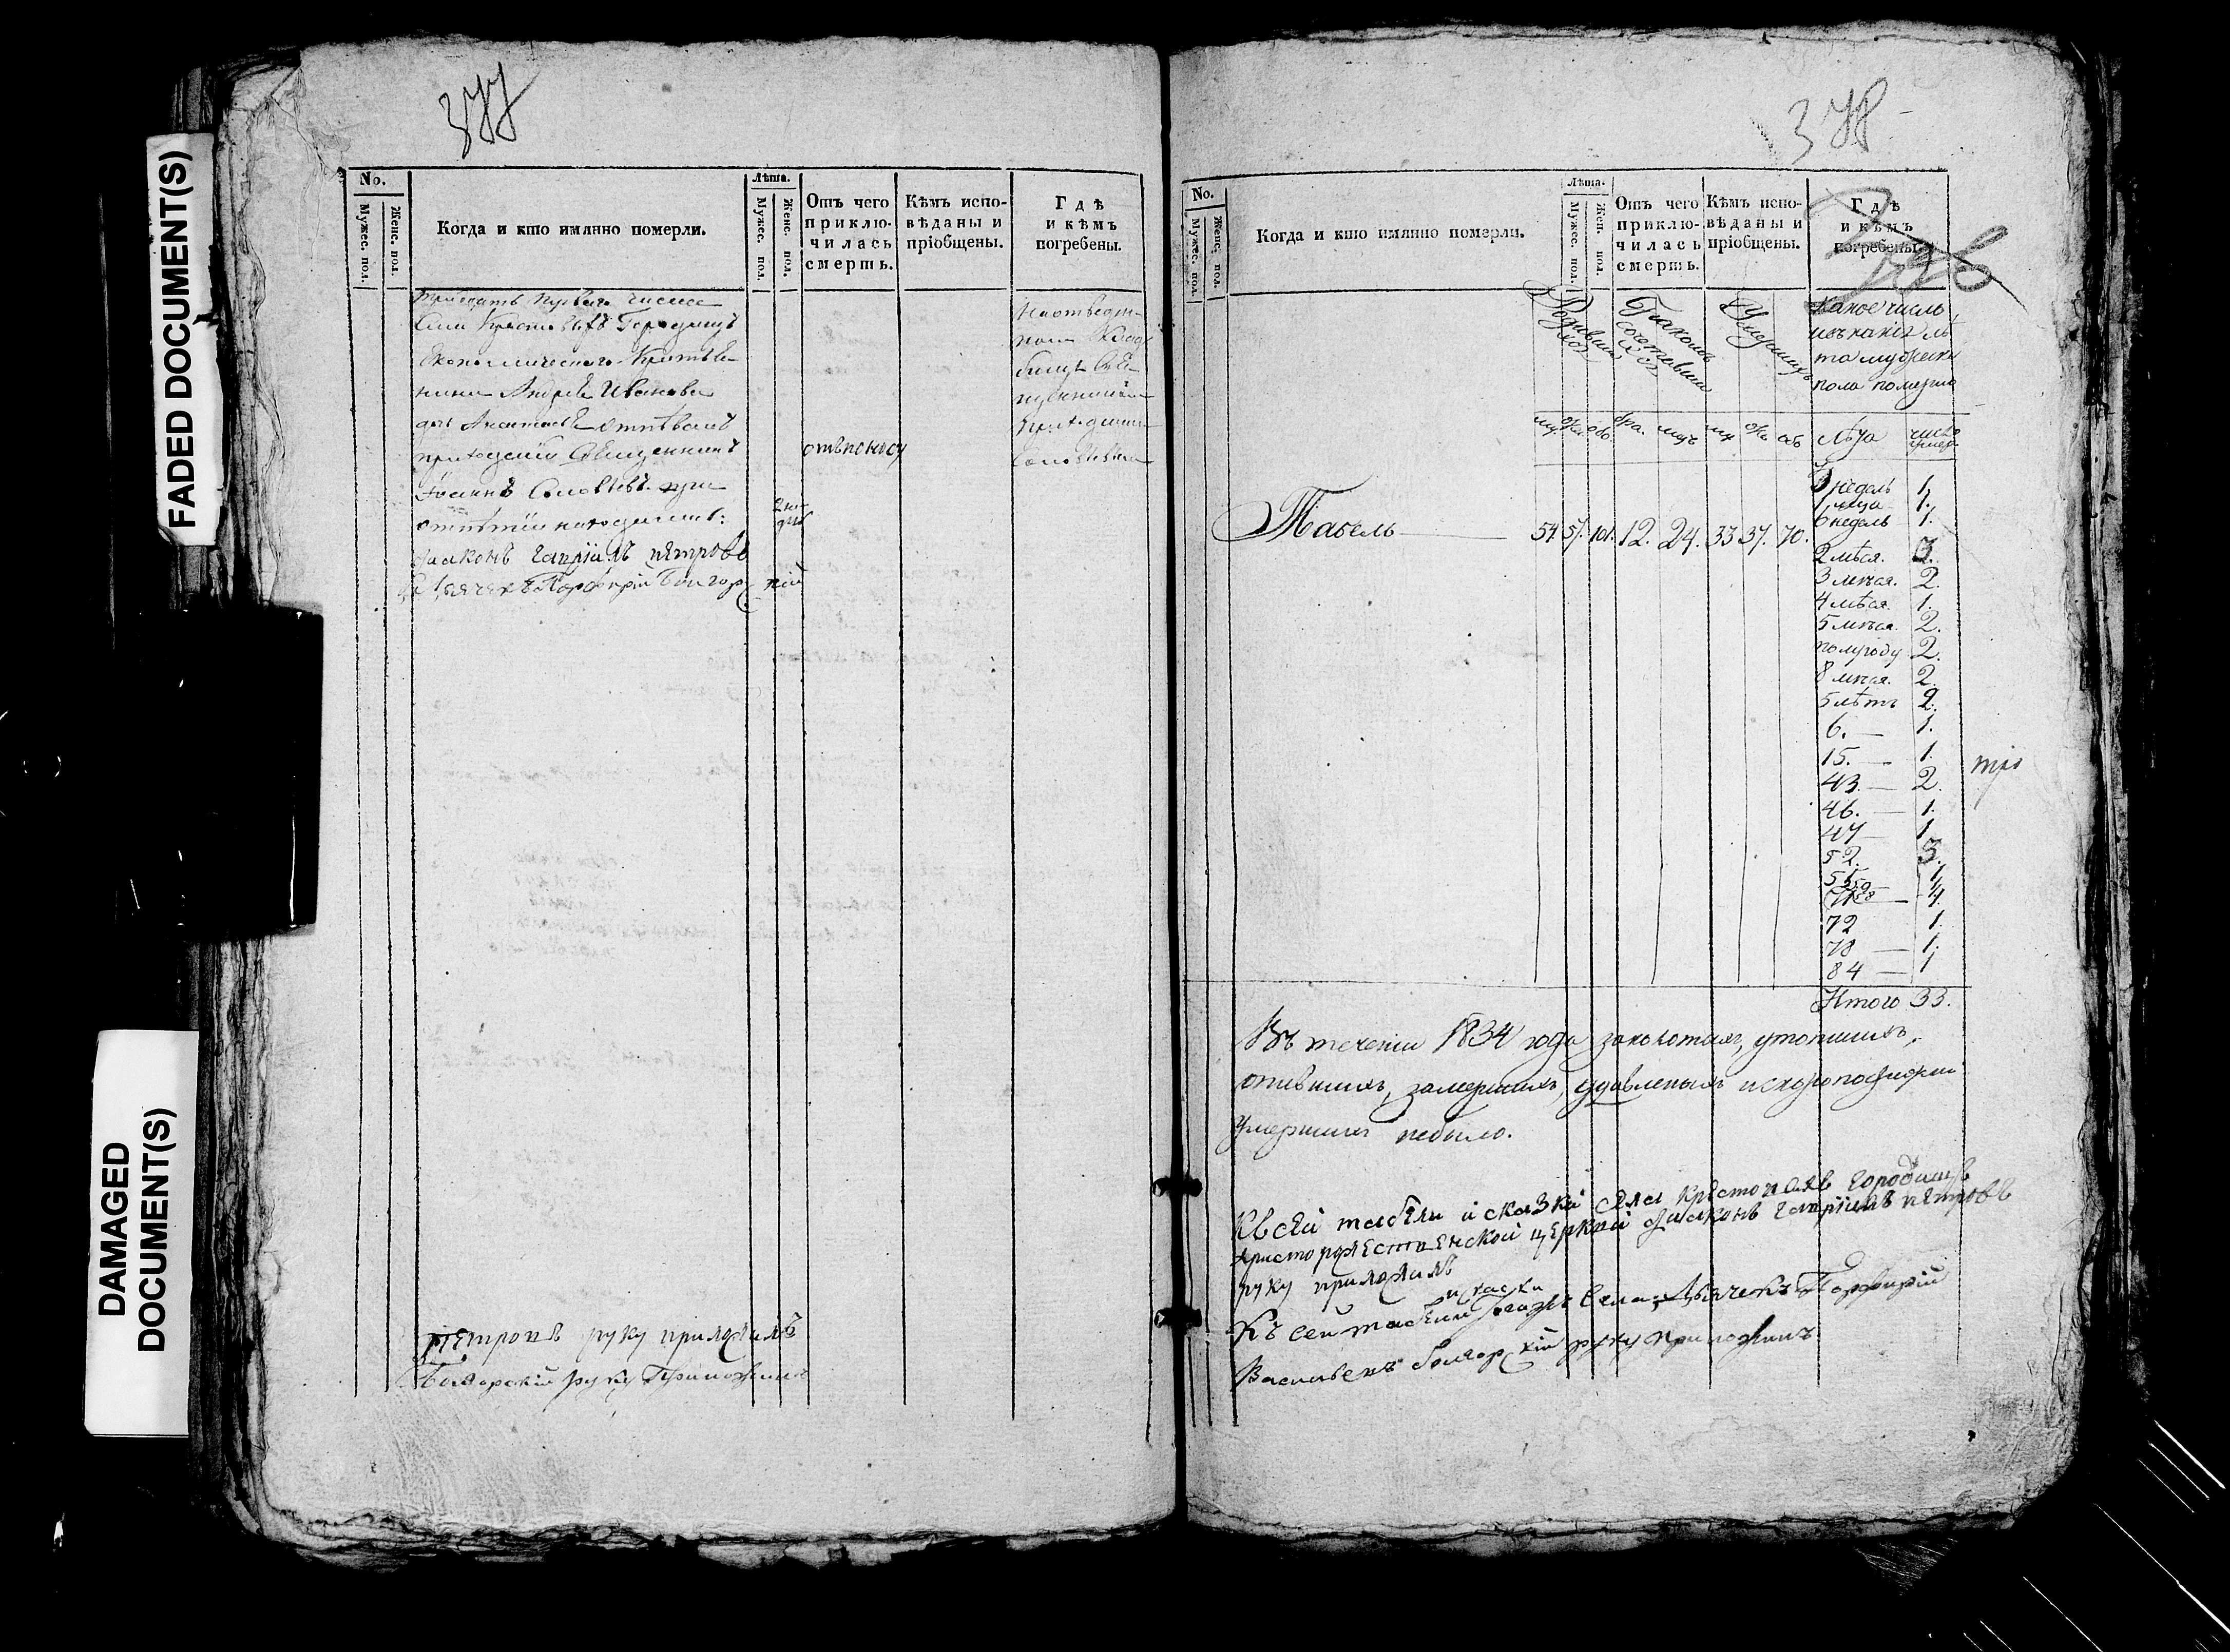 FADED DOCUMENT(S)
DAMAGED
DOCUMENT(S)
377
No.
Мужес. пол.
Женс. пол.
Когда и кто имянно померли.
Лѣта.
Мужес. пол.
Женс. пол.
Отъ чего
приклю-
чилась
смерть.
Кѣмъ испо-
вѣданы и
пріобщены.
Гдѣ
и кѣмъ
погребены.
тридцать перваго числа
Села Крестовыхъ Городищъ
Економическаго Крестья
нина Андрея Иванова
дочь отпѣвалъ
приходскій Священникъ
Іоаннъ Соловьевъ при
отпѣтіи находились:
диаконъ Гавріилъ Петровъ
Дьячекъ Порфирій Болгорскій
2 не
дѣль
отъ поносу
На отведен
номъ Клад
бищѣ Свя
щенникомъ
Приходским
Соловьевым
Петровъ руку приложилъ
Болгорскій руку Приложилъ
378
No.
Мужес. пол.
Женс. пол.
Когда и кто имянно померли.
Лѣта.
Мужес. пол.
Жен. пол.
Отъ чего
приклю-
чилась
смерть.
Кѣмъ испо-
вѣданы и
пріобщены.
Гдѣ
и кѣмъ
погребены.
Родивших
ся
Браком
сочетавши
хся
Умерших
Какое число
изъ какихъ лѣ
та мужеска
пола померло
лѣта число
Табель 54. 57. 101. 12. 24. 33 37. 70.
3 недель 1.
1 1.
6 недель 1.
2 мѣся. 3.
3 мѣся. 2.
4 мѣся. 1.
5 мѣся. 2.
полугоду 2.
8 мѣся. 2.
5 лѣтъ 2.
6. — 1.
15. — 1.
43. — 2.
46. — 1.
47 — 1.
52. 3.
55 1.
4.
72 1.
78 — 1.
84 — 1
Итого 33.
Въ теченіи 1834 года заколотых, утопших,
опившихъ, замерших, удавленыхъ и скоропостижно
умерших небыло.
Къ сей табели и сказки села Крестовыхъ Городищъ
Христорождественской церкви диаконъ Гавріилъ Петровъ
руку приложилъ
Къ сей табели и каски села Дьячекъ Порфирій
Васильевъ Болгорскій руку приложилъ